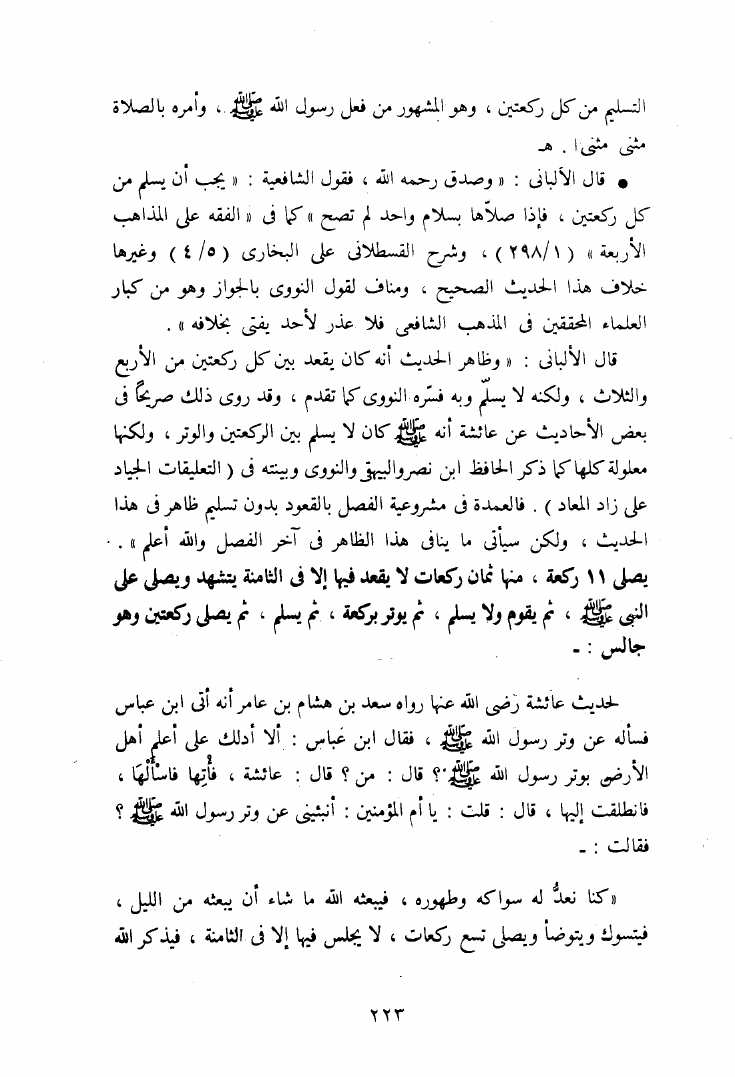 التسليم من كل ركعتين ، وهو المشهور من فعل رسول الله ﷺ ، وأمره بالصلاة
مثنى مثنى ا . هـ
• قال الألبانى : « وصدق رحمه الله ، فقول الشافعية : « يجب أن يسلم من
كل ركعتين ، فإذا صلاّها بسلام واحد لم تصح » كما فى « الفقه على المذاهب
الأربعة » ( ١/٢٩٨ ) ، وشرح القسطلانى على البخارى ( ٥/٤ ) وغيرها
خلاف هذا الحديث الصحيح ، ومناف لقول النووى بالجواز وهو من كبار
العلماء المحققين فى المذهب الشافعى فلا عذر لأحد يفتى بخلافه » .
قال الألبانى : « وظاهر الحديث أنه كان يقعد بين كل ركعتين من الأربع
والثلاث ، ولكنه لا يسلّم وبه فسّره النووى كما تقدم ، وقد روى ذلك صريحًا فى
بعض الأحاديث عن عائشة أنه ﷺ كان لا يسلم بين الركعتين والوتر ، ولكنها
معلولة كلها كما ذكر الحافظ ابن نصر والبيهقى والنووى وبينته فى ( التعليقات الجياد
على زاد المعاد ) . فالعمدة فى مشروعية الفصل بالقعود بدون تسليم ظاهر فى هذا
الحديث ، ولكن سيأتى ما ينافى هذا الظاهر فى آخر الفصل والله أعلم » .
يصلى ١١ ركعة ، منها ثمان ركعات لا يقعد فيها إلا فى الثامنة يتشهد ويصلى على
النبى ﷺ ، ثم يقوم ولا يسلم ، ثم يوتر بركعة ، ثم يسلم ، ثم يصلى ركعتين وهو
جالس : ـ
لحديث عائشة رضى الله عنها رواه سعد بن هشام بن عامر أنه أتى ابن عباس
فسأله عن وتر رسول الله ﷺ ، فقال ابن عباس : ألا أدلك على أعلم أهل
الأرض بوتر رسول الله ﷺ ؟ قال : من ؟ قال : عائشة ، فأْتِها فاسْأَلْهَا ،
فانطلقت إليها ، قال : قلت : يا أم المؤمنين : أنبئينى عن وتر رسول الله ﷺ ؟
فقالت : ـ
« كنا نعدُّ له سواكه وطهوره ، فيبعثه الله ما شاء أن يبعثه من الليل ،
فيتسوك ويتوضأ ويصلى تسع ركعات ، لا يجلس فيها إلا فى الثامنة ، فيذكر الله
٢٢٣